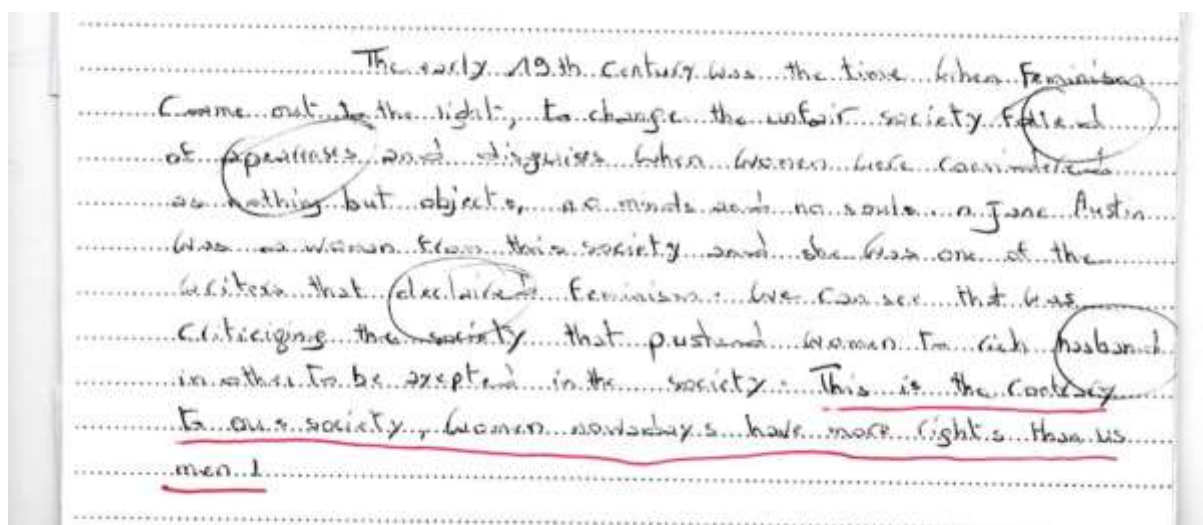 The early 19th Century was the time when Feminism
Came out to the light, to change the unfair society
of and disguises when women were
as nothing but objects, no minds and no souls. Jane Austin
was a women from this society and she was one of the
writers that declaired Feminism. We can see that was
Criticizing the society that women to rich husband
in other to be axepted in the society. This is the Contrary
to our society, women nowadays have more rights than us
men !